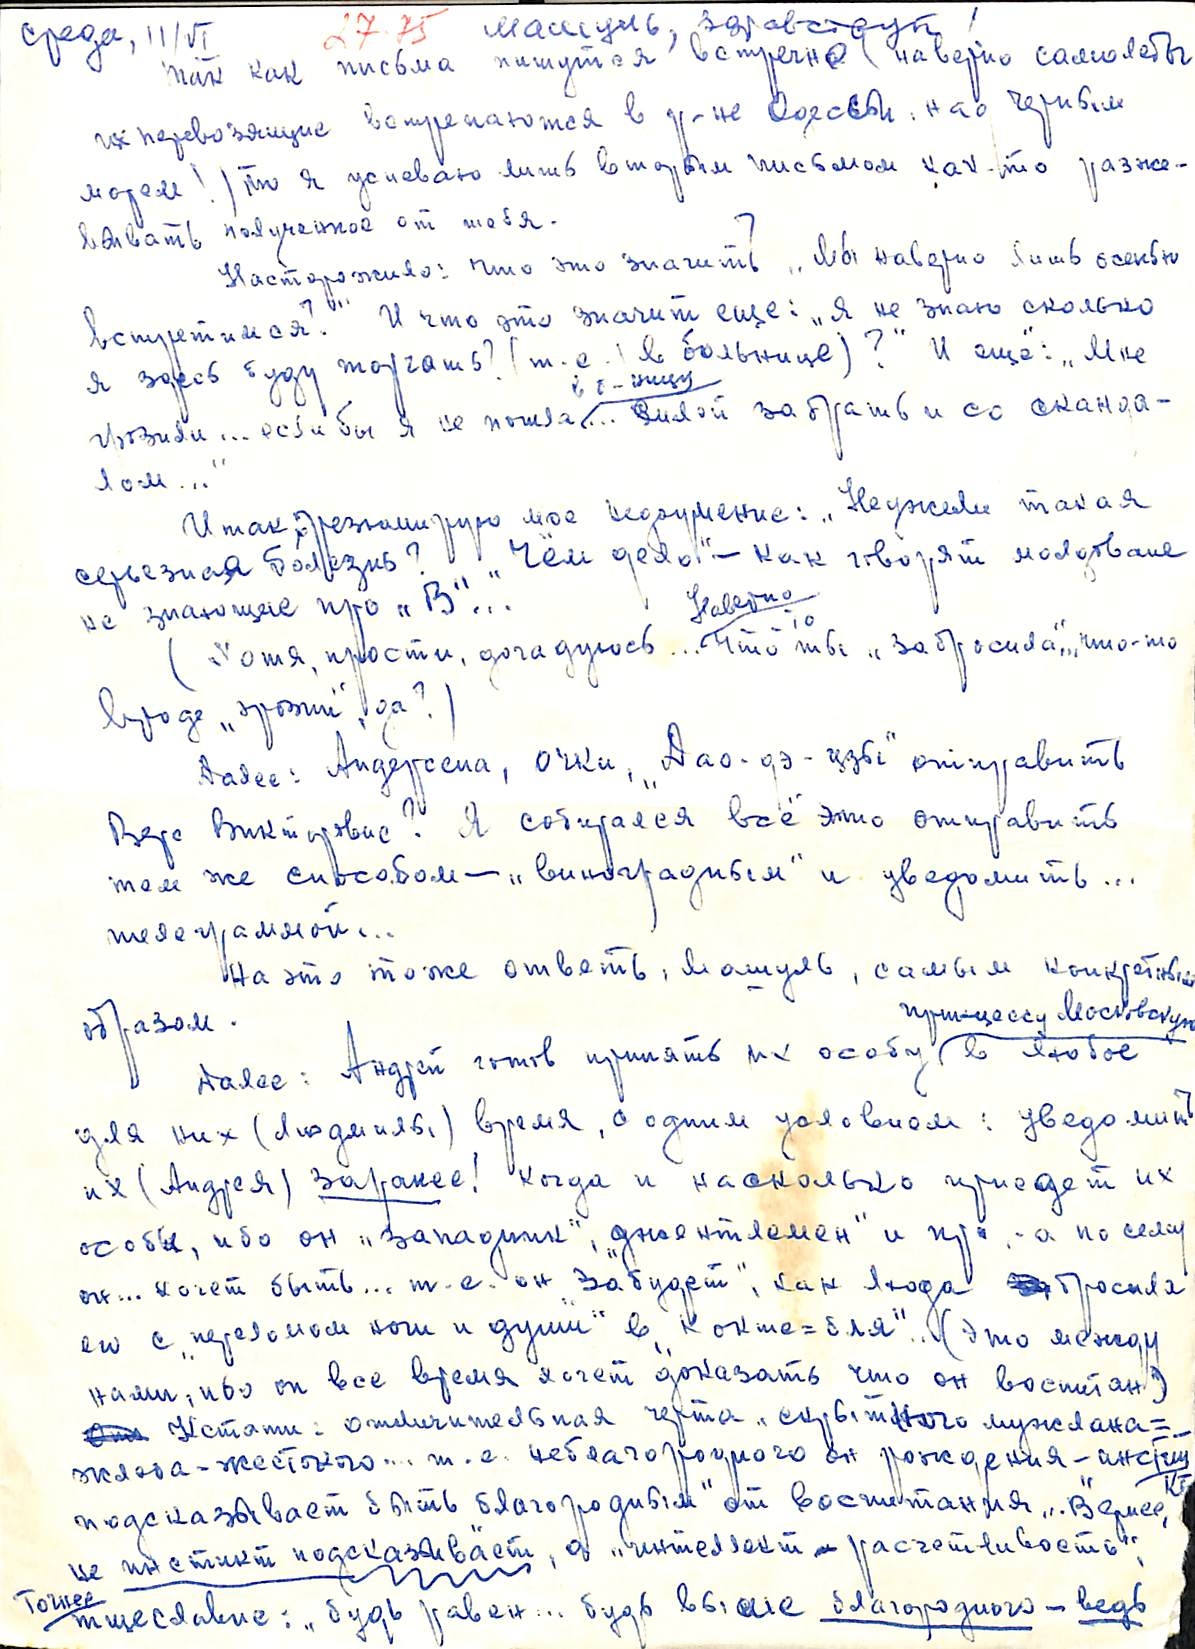 среда, 11/VI 27.75 Машуль, здравствуй!
Так как письма пишутся встречно (наверно самолеты
их перевозящие встречаются в р-не Одессы, над Черным
морем!) то я успеваю лишь вторым письмом как-то разже-
вывать полученное от тебя.
Насторожило: что это значит? „Мы наверно лишь осенью
встретимся?" И что это значит еще: „я не знаю сколько
я здесь буду торчать? (т.е. в больнице)?" И ещё: „Мне
в б-ницу
грозили... если бы я не пошла... силой забрать и со сканда-
лом..."
Итак, резюмирую мое недоумение: „Неужели такая
серьезная болезнь? „Чём дело" – как говорят молдоване
не знающие про „В"...
Наверно
(Хотя, прости, догадуюсь... что ты „забросила", что-то
вроде „грозили", да?)
Далее: Андерсена, очки, „Дао-дэ-цзы" отправить
Вере Викторовне? Я собирался всё это отправить
тем же способом – „виноградным" и уведомить...
телеграммой...
На это тоже ответь, Машуль, самым конкретным
образом.
принцессу Московскую
Далее: Андрей готов принять их особу в любое
для них (Людмилы) время, с одним условием: уведомить
их (Андрея) заранее! Когда и насколько приедет их
особы, ибо он „западник", „джентлемен" и пр. – а посему
он... хочет быть... т.е. он „забудет", как Люда бросила
его с „переломом ноги и души" в „Кокте=бля"... (это между
нами, ибо он все время хочет доказать что он воспитан)
Кстати: отличительная черта „скрытного мужлана=
жлоба – жестокого... т.е. неблагородного от рождения – инстинкт
подсказывает быть благородным" от воспитания... Вернее,
не инстинкт подсказывает, а „интеллект – расчетливость",
Точнее
тщеславие: „будь равен... будь выше благородного – ведь